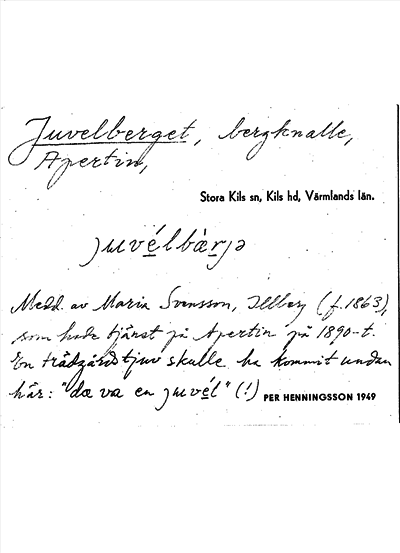 Juvelberget, bergknalle,
Apertin,
Stora Kils sn, Kils hd, Värmlands län.
juvélbàrjə
Medd. av Maria Svensson, Illberg (f. 1863),
som hade tjänst på Apertin på 1890-t.
En trädgårdstjuv skulle ha kommit undan
här: "dæ va en juvél" (!)
PER HENNINGSSON 1949